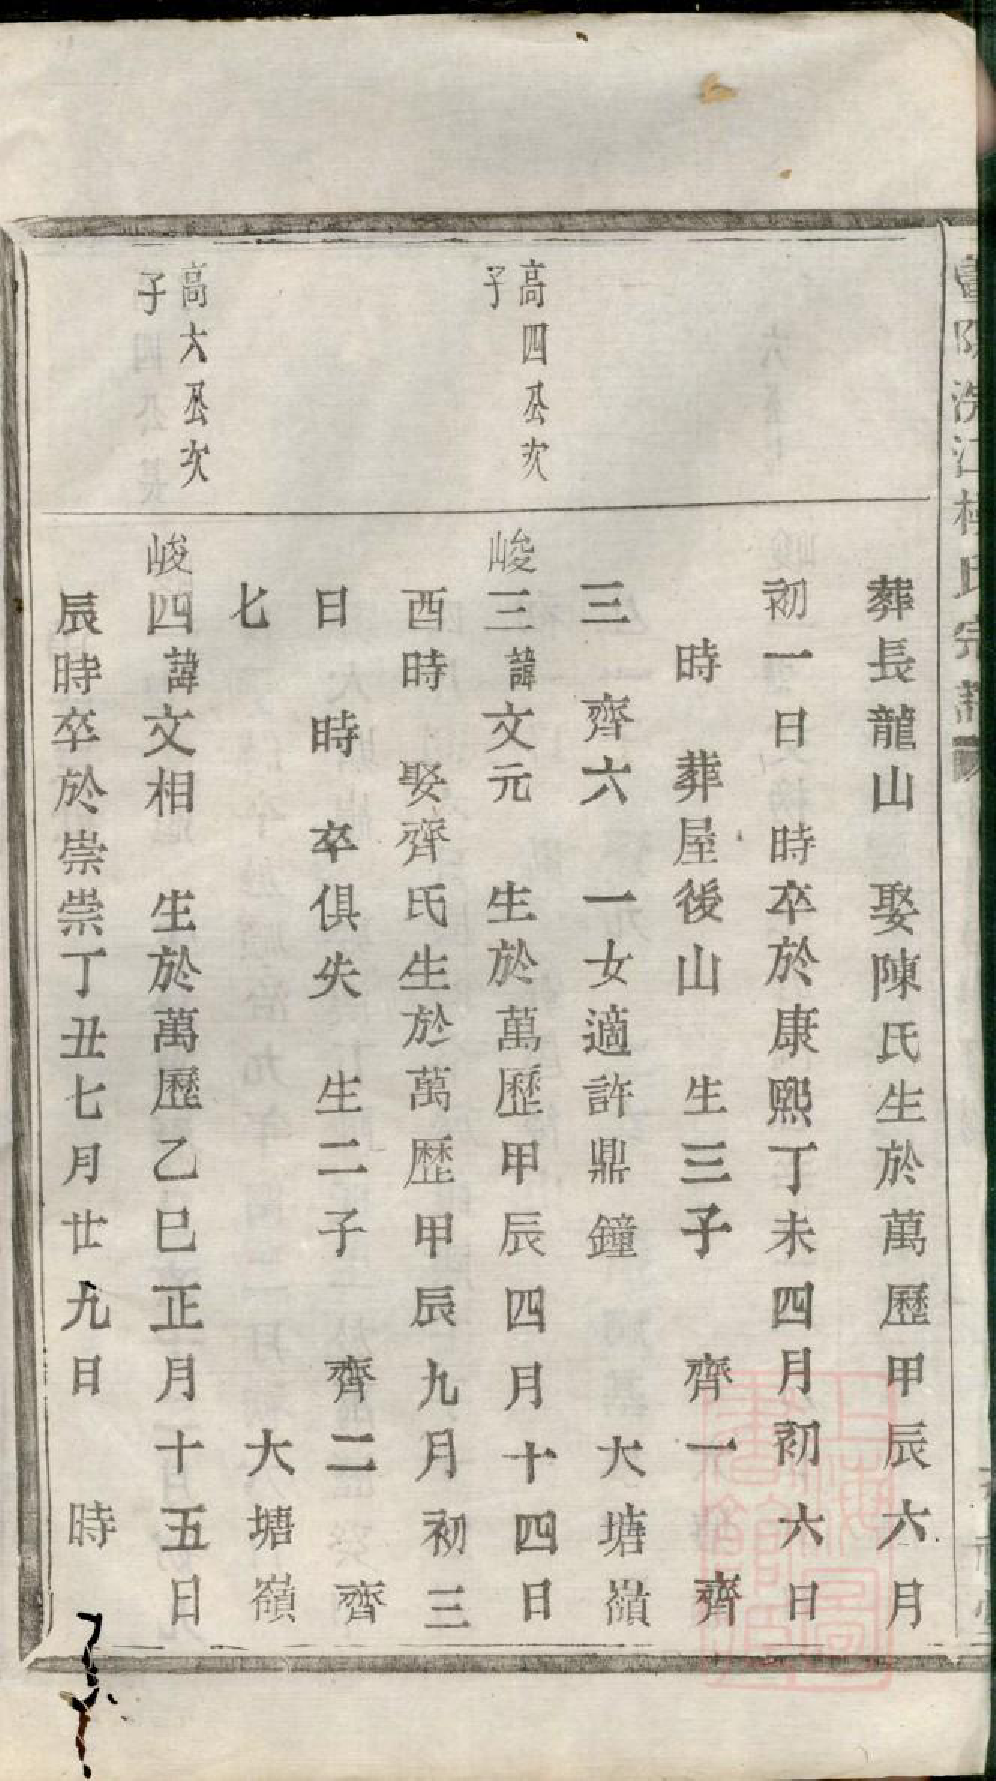 葬長龍山　娶陳氏生於萬歷甲辰六月
初一日　時卒於康熙丁未四月初六日
時　葬屋後山　生三子　齊一　齊
三　齊六　一女適許鼎鐘　大塘嶺
高四公次
子
峻三諱文元　生於萬歷甲辰四月十四日
酉時　娶齊氏生於萬歷甲辰九月初三
日　時　卒俱失　生二子　齊二　齊
七　大塘嶺
高六公次
子
峻四諱文相　生於萬歷乙巳正月十五日
辰時卒於崇崇丁丑七月廿九日　時